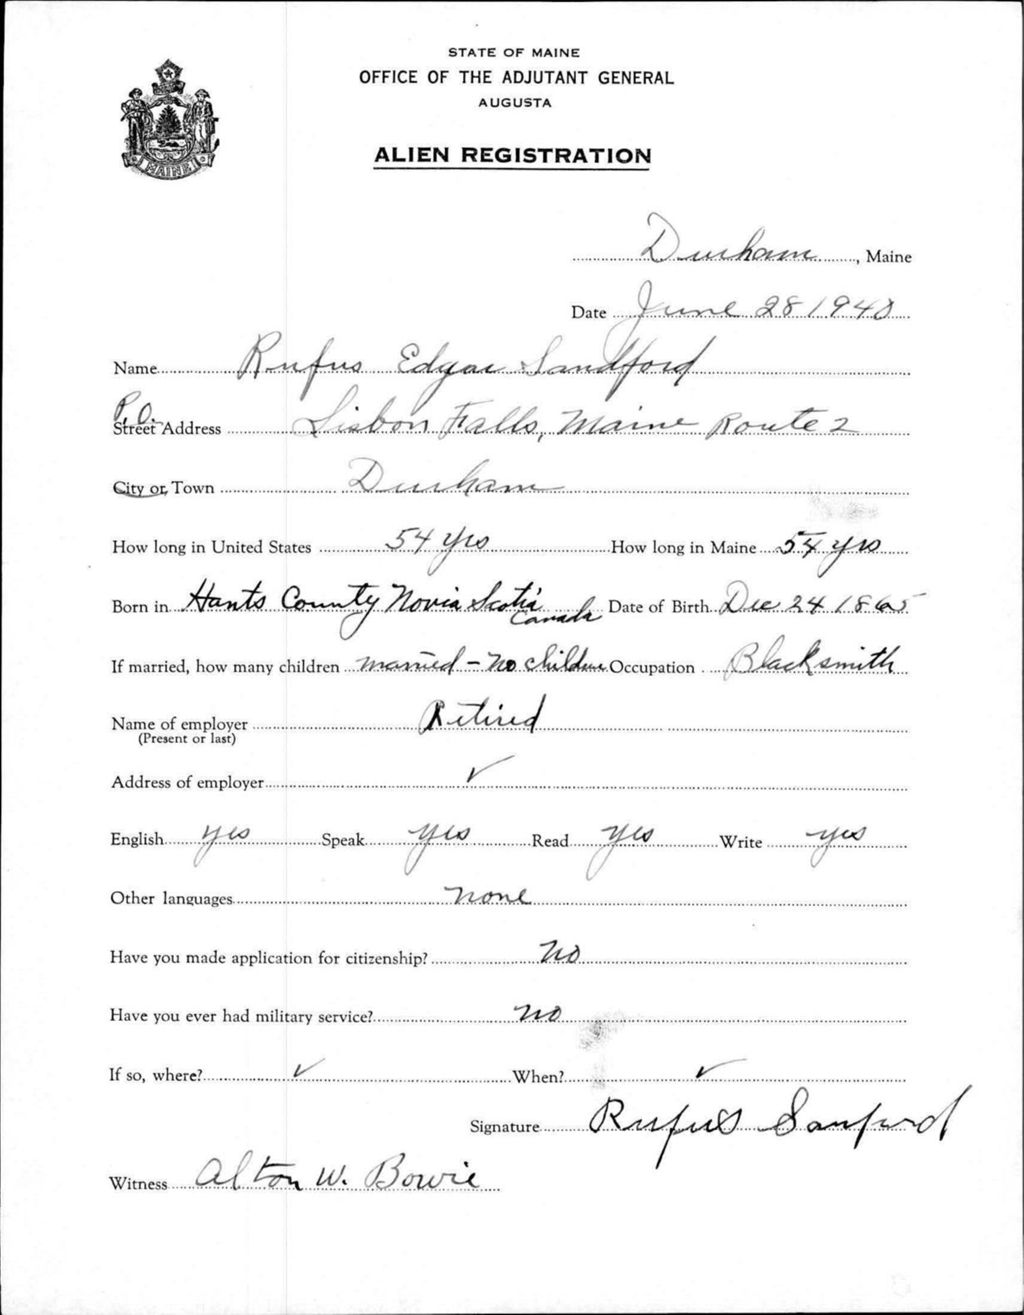 STATE OF MAINE
OFFICE OF THE ADJUTANT GENERAL
AUGUSTA
MAINE
ALIEN REGISTRATION
Durham, Maine
Date June 28 1940
Name Rufus Edgar Sandford
P.O.
Street Address Lisbon Falls, Maine Route 2
City or Town Durham
How long in United States 54 yrs How long in Maine 54 yrs
Born in Hants County Novia Scotia Canada Date of Birth Dec 24 1865
If married, how many children married - no children Occupation Blacksmith
Name of employer Retired
(Present or last)
Address of employer ✓
English yes Speak yes Read yes Write yes
Other languages none
Have you made application for citizenship? No
Have you ever had military service? no
If so, where? ✓ When? ✓
Signature Rufus Sanford
Witness Alton W. Bowie